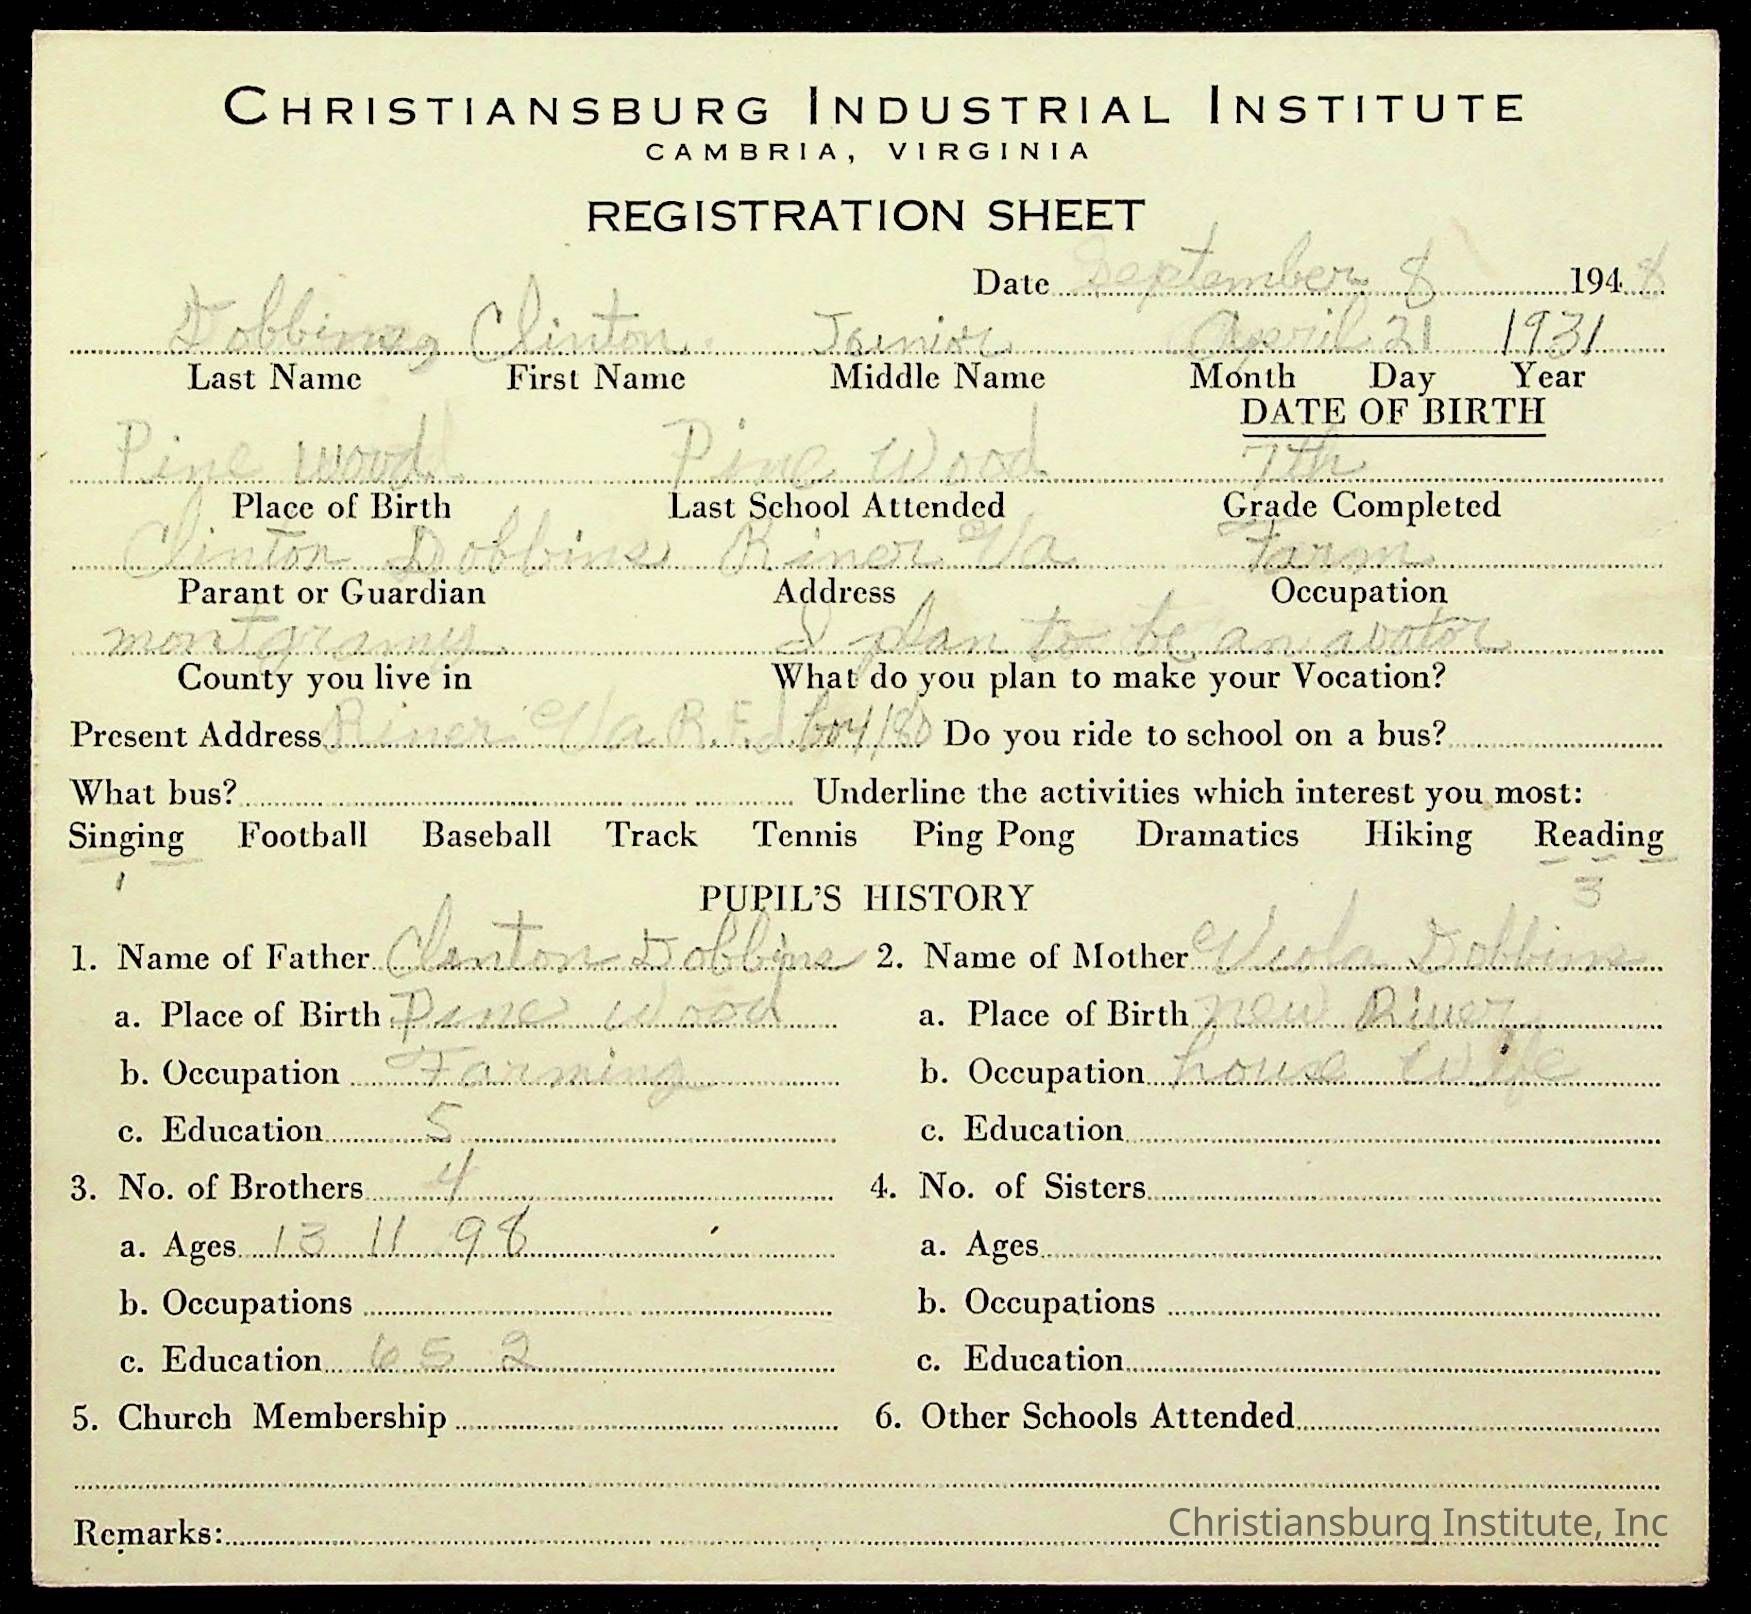 CHRISTIANSBURG INDUSTRIAL INSTITUTE
CAMBRIA, VIRGINIA
REGISTRATION SHEET
Date September 8 1948
Dobbins Clinton Junior April 21 1931
Last Name First Name Middle Name Month Day Year
DATE OF BIRTH
Pine wood Pine Wood 7th
Place of Birth Last School Attended Grade Completed
Clinton Dobbins Riner Va Farm
Parant or Guardian Address Occupation
montgramy I plan to be an avator
County you live in What do you plan to make your Vocation?
Present Address Riner Va R.F.d box 180 Do you ride to school on a bus?
What bus? Underline the activities which interest you most:
Singing Football Baseball Track Tennis Ping Pong Dramatics Hiking Reading
1 3
PUPIL'S HISTORY
1. Name of Father Clinton Dobbins 2. Name of Mother Viola Dobbins
a. Place of Birth Pine wood a. Place of Birth new River
b. Occupation Farming b. Occupation house wife
c. Education 5 c. Education
3. No. of Brothers 4 4. No. of Sisters
a. Ages 13 11 9 8 a. Ages
b. Occupations b. Occupations
c. Education 6 5 2 c. Education
5. Church Membership 6. Other Schools Attended
Remarks:
Christiansburg Institute, Inc